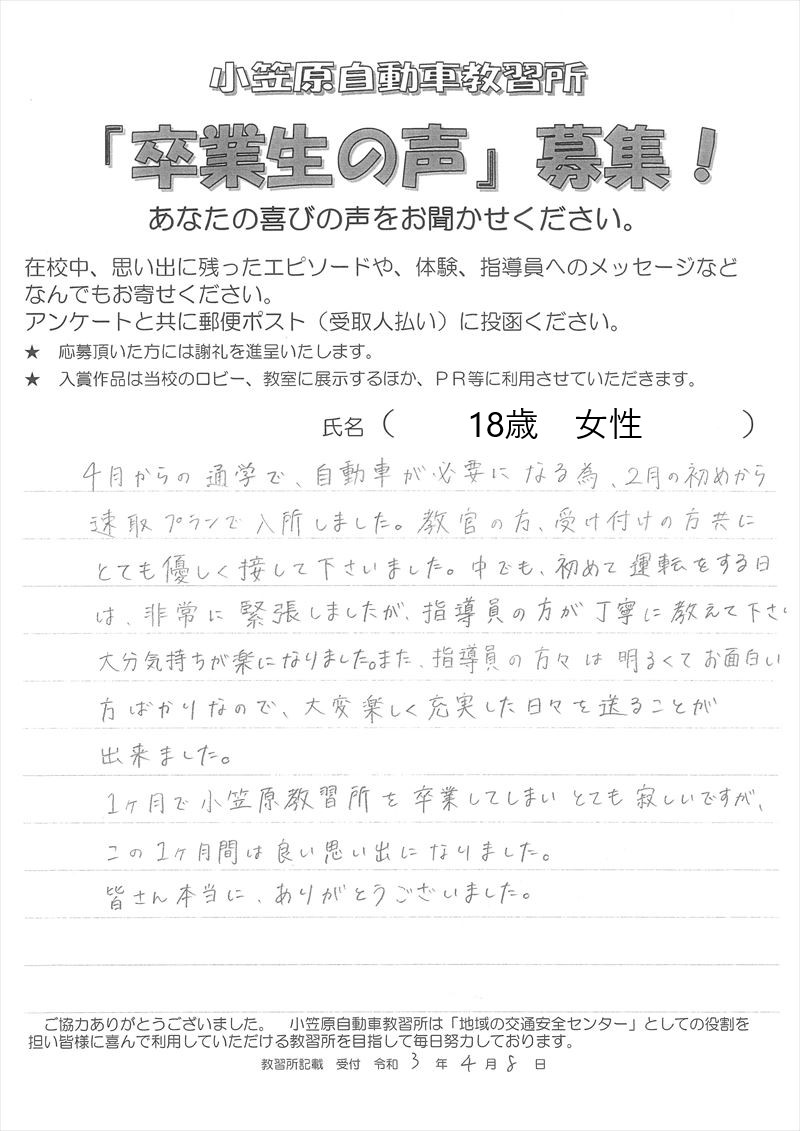 小笠原自動車教習所
『卒業生の声』募集！
あなたの喜びの声をお聞かせください。
在校中、思い出に残ったエピソードや、体験、指導員へのメッセージなど
なんでもお寄せください。
アンケートと共に郵便ポスト（受取人払い）に投函ください。
★　応募頂いた方には謝礼を進呈いたします。
★　入賞作品は当校のロビー、教室に展示するほか、ＰＲ等に利用させていただきます。
氏名（　18歳　女性　）
4月からの通学で、自動車が必要になる為、2月の初めから
速取プランで入所しました。教官の方、受け付けの方共に
とても優しく接して下さいました。中でも、初めて運転をする日
は、非常に緊張しましたが、指導員の方が丁寧に教えて下さい
大分気持ちが楽になりました。また、指導員の方々は明るくてお面白い
方ばかりなので、大変楽しく充実した日々を送ることが
出来ました。
1ヶ月で小笠原教習所を卒業してしまいとても寂しいですが、
この1ヶ月間は良い思い出になりました。
皆さん本当に、ありがとうございました。
ご協力ありがとうございました。　小笠原自動車教習所は「地域の交通安全センター」としての役割を
担い皆様に喜んで利用していただける教習所を目指して毎日努力しております。
教習所記載　受付　令和 3 年 4 月 8 日